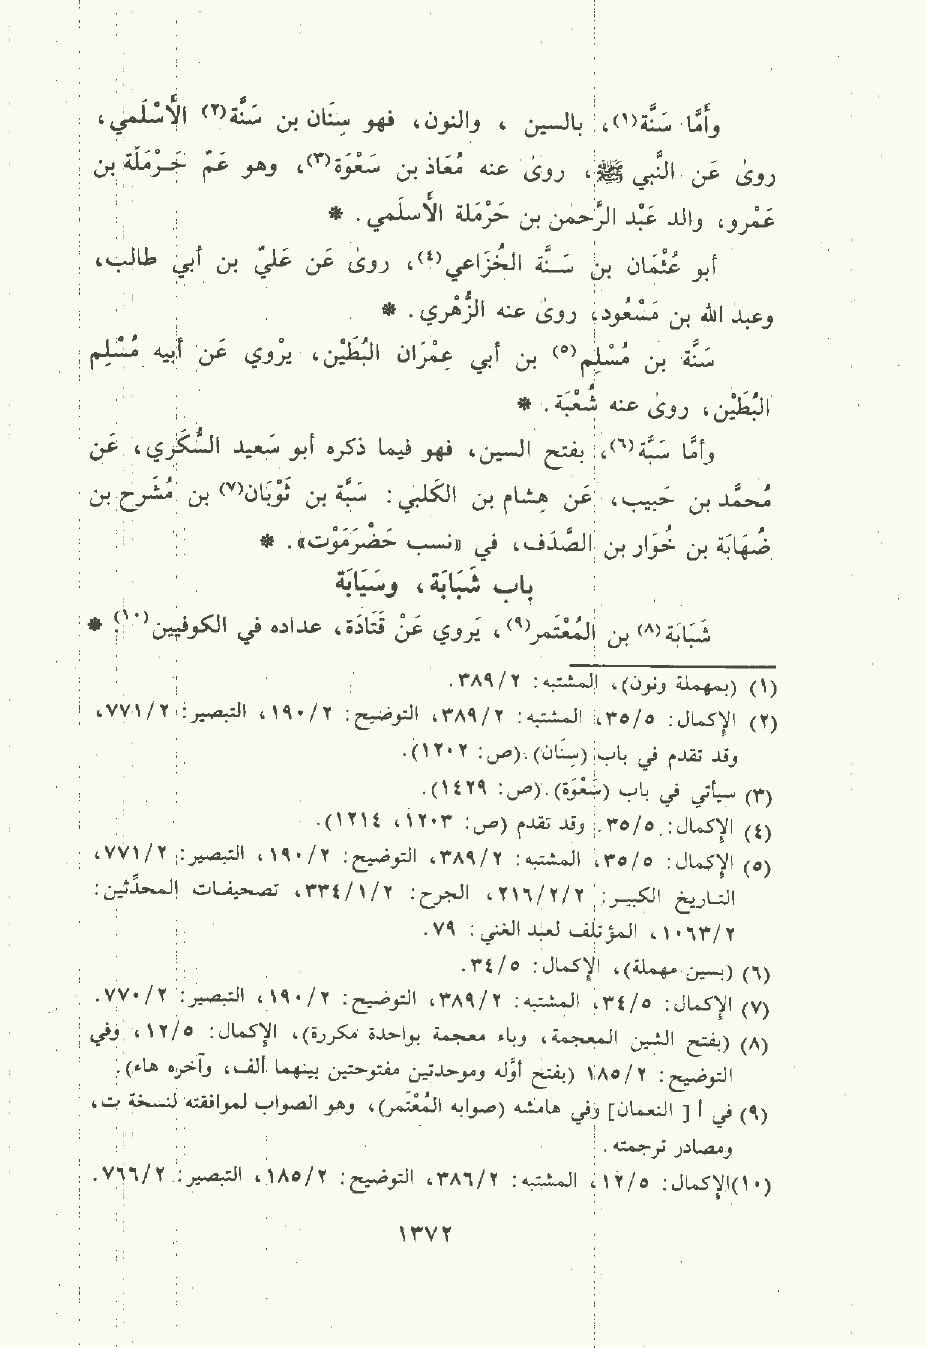 وأَمَّا سَنَّة(١)، بالسين ، والنون، فهو سِنَان بن سَنَّة(٢) الأَسْلَمي،
روىٰ عَن النَّبي ﷺ، روىٰ عنه مُعَاذ بن سَعْوَة(٣)، وهو عَمّ حَرْمَلَة بن
عَمْرو، والد عَبْد الرَّحمٰن بن حَرْمَلة الأَسلَمي. *
أبو عُثْمَان بن سَنَّة الخُزَاعي(٤)، روىٰ عَن عَليّ بن أبي طالب،
وعبد الله بن مَسْعُود، روىٰ عنه الزُّهْري. *
سَنَّة بن مُسْلِم(٥) بن أبي عِمْرَان البُطَيْن، يرْوي عَن أبيه مُسْلِم
البُطَيْن، روىٰ عنه شُعْبَة. *
وأَمَّا سَبَّة(٦)، بفتح السين، فهو فيما ذكره أبو سَعيد السُّكَري، عَن
مُحمَّد بن حَبيب، عَن هِشام بن الكَلبي: سَبَّة بن ثَوْبَان(٧) بن مُشَرح بن
ضُهَابَة بن خُوَار بن الصَّدَف، في «نسب حَضْرَمَوْت». *
باب شَبَابَة، وسَيَابَة
شَبَابَة(٨) بن المُعْتَمر(٩)، يَروي عَنْ قَتَادَة، عداده في الكوفيين(١٠). *
(١) (بمهملة ونون)، المشتبه: ٣٨٩/٢.
(٢) الإكمال: ٣٥/٥، المشتبه: ٣٨٩/٢، التوضيح: ١٩٠/٢، التبصير: ٧٧١/٢،
وقد تقدم في باب (سِنَان). (ص: ١٢٠٢).
(٣) سيأتي في باب (سَعْوَة). (ص: ١٤٢٩).
(٤) الإكمال: ٣٥/٥. وقد تقدم (ص: ١٢٠٣، ١٢١٤).
(٥) الإكمال: ٣٥/٥، المشتبه: ٣٨٩/٢، التوضيح: ١٩٠/٢، التبصير: ٧٧١/٢،
التاريخ الكبير: ٢١٦/٢/٢، الجرح: ٣٣٤/١/٢، تصحيفات المحدِّثين:
١٠٦٣/٢، المؤتلف لعبد الغني: ٧٩.
(٦) (بسين مهملة)، الإكمال: ٣٤/٥.
(٧) الإكمال: ٣٤/٥، المشتبه: ٣٨٩/٢، التوضيح: ١٩٠/٢، التبصير: ٧٧٠/٢.
(٨) (بفتح الشين المعجمة، وباء معجمة بواحدة مكررة)، الإكمال: ١٢/٥، وفي
التوضيح: ١٨٥/٢ (بفتح أوَّله وموحدتين مفتوحتين بينهما ألف، وآخره هاء).
(٩) في أ [ النعمان] وفي هامشه (صوابه المُعْتَمر)، وهو الصواب لموافقته لنسخة ت،
ومصادر ترجمته.
(١٠)الإكمال: ١٢/٥، المشتبه: ٣٨٦/٢، التوضيح: ١٨٥/٢، التبصير: ٧٦٦/٢.
١٣٧٢